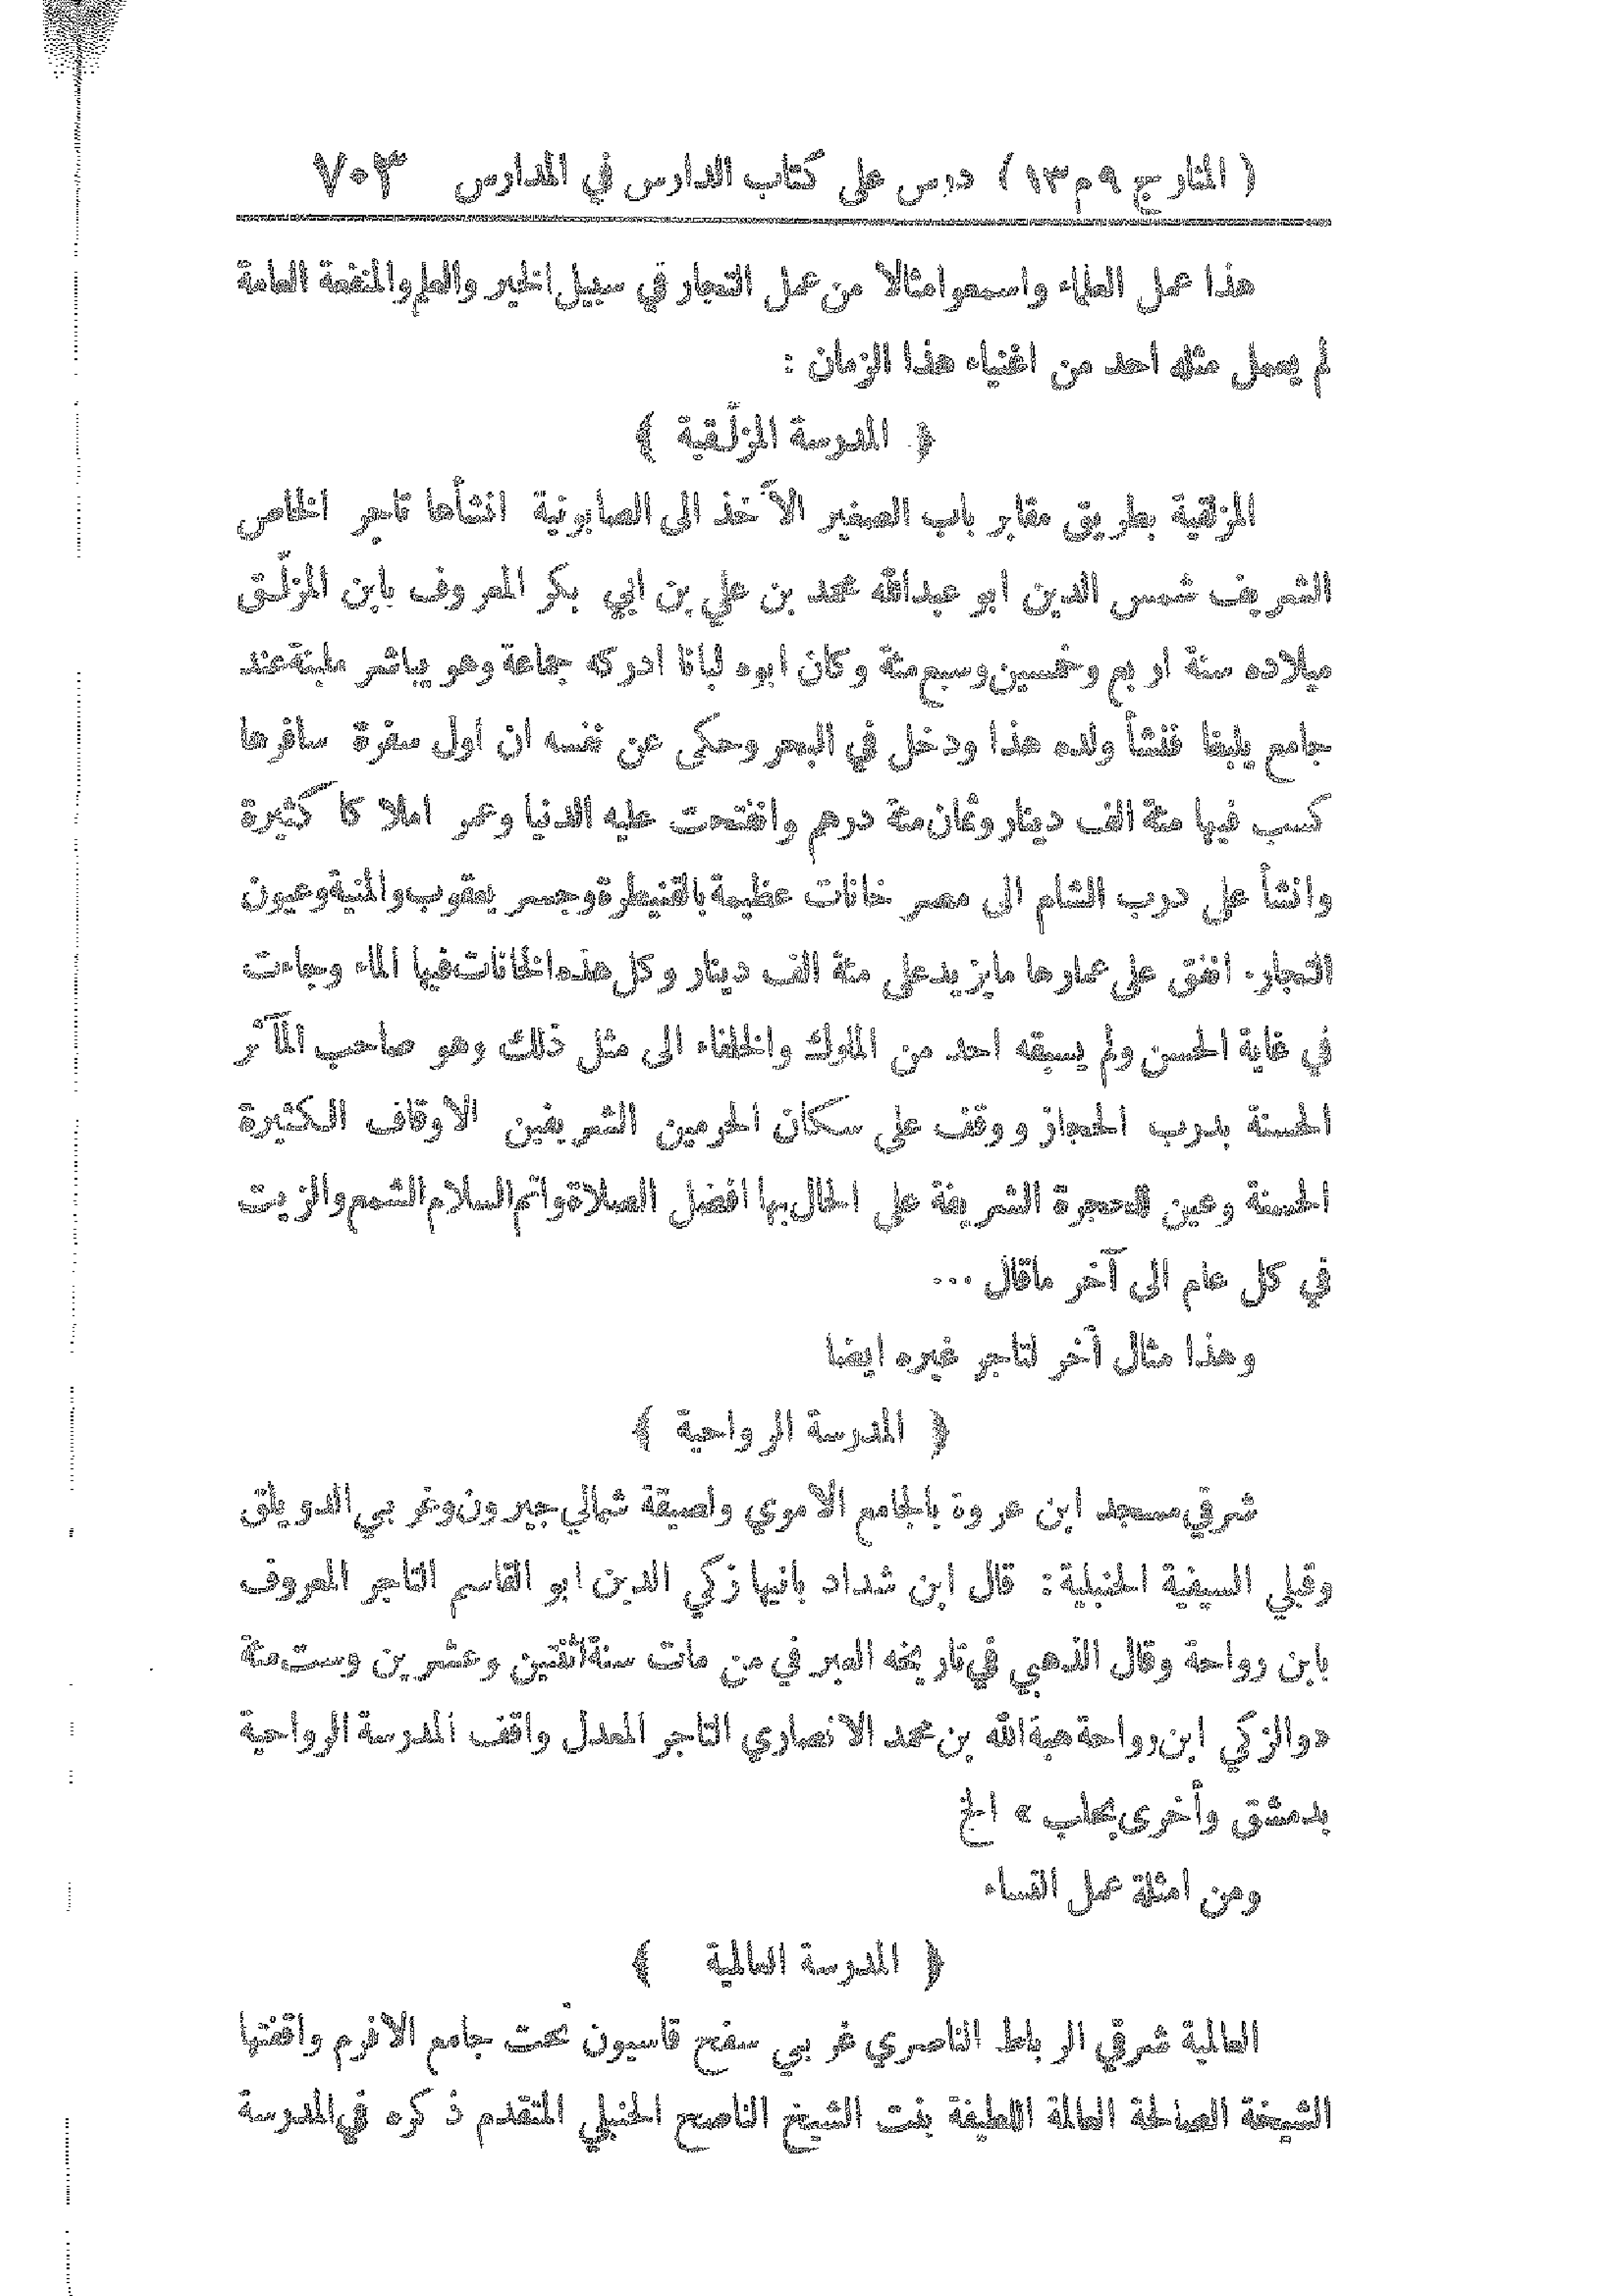 ( المنار ج ٩ م ١٣ ) درس على كتاب الدارس في المدارس ٧٠٣
هذا عمل العلماء واسمعوا مثالا من عمل التجار في سبيل الخير والعلم والمنفعة العامة
لم يعمل مثله احد من اغنياء هذا الزمان :
﴿ المدرسة المزلّقية ﴾
المزلقية بطريق مقابر باب الصغير الآخذ الى الصابونية انشأها تاجر الخاص
الشريف شمس الدين ابو عبدالله محمد بن علي بن ابي بكر المعروف بابن المزلّق
ميلاده سنة اربع وخمسين وسبع مئة وكان ابوه لبانا ادركه جماعة وهو يباشر ملبنة عند
جامع يلبغا فنشأ ولده هذا ودخل في البحر وحكى عن نفسه ان اول سفرة سافرها
كسب فيها مئة الف دينار وثمان مئة درهم وانفتحت عليه الدنيا وعمر املاكا كثيرة
وانشأ على درب الشام الى مصر خانات عظيمة بالقنيطرة وجسر يعقوب والمنية وعيون
التجار. انفق على عمارها مايزيد على مئة الف دينار وكل هذه الخانات فيها الماء وجاءت
في غاية الحسن ولم يسبقه احد من الملوك والخلفاء الى مثل ذلك وهو صاحب المآثر
الحسنة بدرب الحجاز ووقف على سكان الحرمين الشريفين الاوقاف الكثيرة
الحسنة وعين للحجرة الشريفة على الحال بها افضل الصلاة واتم السلام الشمع والزيت
في كل عام الى آخر ماقال ...
وهذا مثال آخر لتاجر غيره ايضا
﴿ المدرسة الرواحية ﴾
شرقي مسجد ابن عروة بالجامع الاموي ولصيقة شمالي جيرون وغربي الدويلق
وقبلي السيفية الحنبلية : قال ابن شداد بانيها زكي الدين ابو القاسم التاجر المعروف
بابن رواحة وقال الذهبي في تاريخه العبر في من مات سنة اثنتين وعشرين وست مئة
«والزكي ابن رواحة هبة الله بن محمد الانصاري التاجر المعدل واقف المدرسة الرواحية
بدمشق وأخرى بحلب » الخ
ومن امثلة عمل النساء
﴿ المدرسة العالمية ﴾
العالمية شرقي الرباط الناصري غربي سفح قاسيون تحت جامع الافرم واقفتها
الشيخة الصالحة العالمة اللطيفة بنت الشيخ الناصح الحنبلي المتقدم ذكره في المدرسة